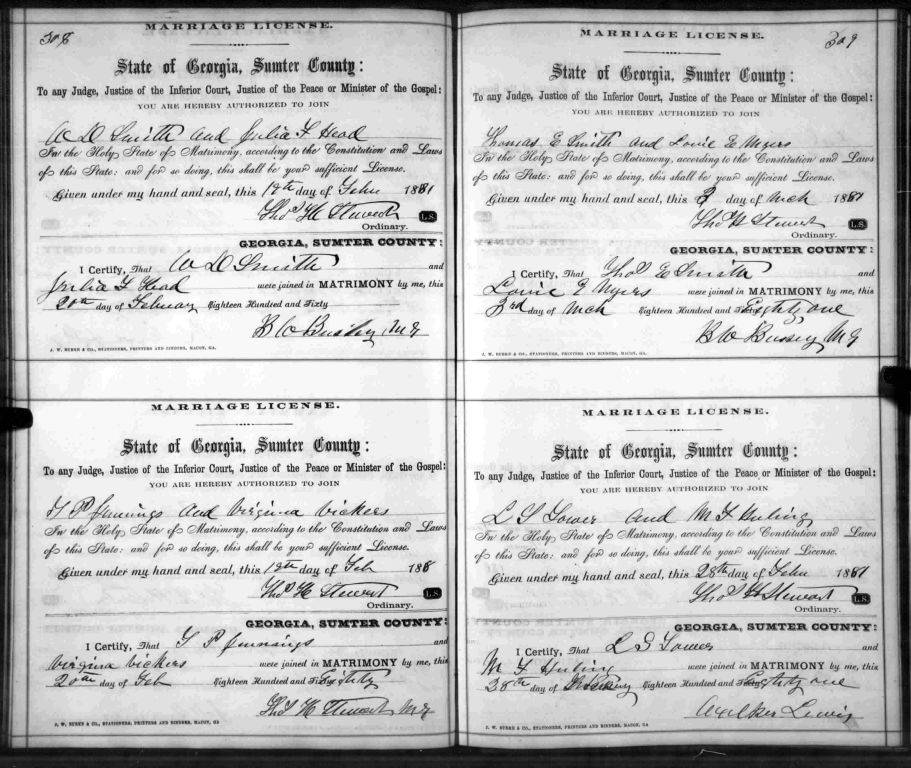 308
MARRIAGE LICENSE.
State of Georgia, Sumter County:
To any Judge, Justice of the Inferior Court, Justice of the Peace or Minister of the Gospel:
YOU ARE HEREBY AUTHORIZED TO JOIN
W D Smith and Julia F Head
In the Holy State of Matrimony, according to the Constitution and Laws
of this State: and for so doing, this shall be your sufficient License.
Given under my hand and seal, this 18th day of Feb 1881
Thos H Stewart L.S.
Ordinary.
GEORGIA, SUMTER COUNTY:
I Certify, That W D Smith and
Julia F Head were joined in MATRIMONY by me, this
20th day of February Eighteen Hundred and Sixty
B W Bussey M G
J. W. BURKE & CO., STATIONERS, PRINTERS AND BINDERS, MACON, GA.
MARRIAGE LICENSE.
State of Georgia, Sumter County:
To any Judge, Justice of the Inferior Court, Justice of the Peace or Minister of the Gospel:
YOU ARE HEREBY AUTHORIZED TO JOIN
T P Jennings and Virginia Vickers
In the Holy State of Matrimony, according to the Constitution and Laws
of this State: and for so doing, this shall be your sufficient License.
Given under my hand and seal, this 18th day of Feb 188
Thos H Stewart L.S.
Ordinary.
GEORGIA, SUMTER COUNTY:
I Certify, That T P Jennings
Virginia Vickers were joined in MATRIMONY by me, this
20th day of Feb Eighteen Hundred and Eighty
Thos H Stewart M G
J. W. BURKE & CO., STATIONERS, PRINTERS AND BINDERS, MACON, GA
309
MARRIAGE LICENSE.
State of Georgia, Sumter County:
To any Judge, Justice of the Inferior Court, Justice of the Peace or Minister of the Gospel:
YOU ARE HEREBY AUTHORIZED TO JOIN
Thomas E Smith and Louie E Myers
In the Holy State of Matrimony, according to the Constitution and Laws
of this State: and for so doing, this shall be your sufficient License.
Given under my hand and seal, this 3 day of Mch 1881
Thos H Stewart L.S.
Ordinary.
GEORGIA, SUMTER COUNTY:
I Certify, That Thos E Smith and
Louie E Myers were joined in MATRIMONY by me, this
3rd day of Mch Eighteen Hundred and Eighty one
B W Bussey M G
J. W. BURKE & CO., STATIONERS, PRINTERS AND BINDERS, MACON, GA
MARRIAGE LICENSE.
State of Georgia, Sumter County:
To any Judge, Justice of the Inferior Court, Justice of the Peace or Minister of the Gospel:
YOU ARE HEREBY AUTHORIZED TO JOIN
L S Tower and M F Huling
In the Holy State of Matrimony, according to the Constitution and Laws
of this State: and for so doing, this shall be your sufficient License.
Given under my hand and seal, this 28th day of Feb 1881
Thos H Stewart L.S.
Ordinary.
GEORGIA, SUMTER COUNTY:
I Certify, That L S Tower and
M F Huling were joined in MATRIMONY by me, this
28th day of Eighteen Hundred and Eighty one
Lewis
J. W. BURKE & CO., STATIONERS, PRINTERS AND BINDERS, MACON, GA